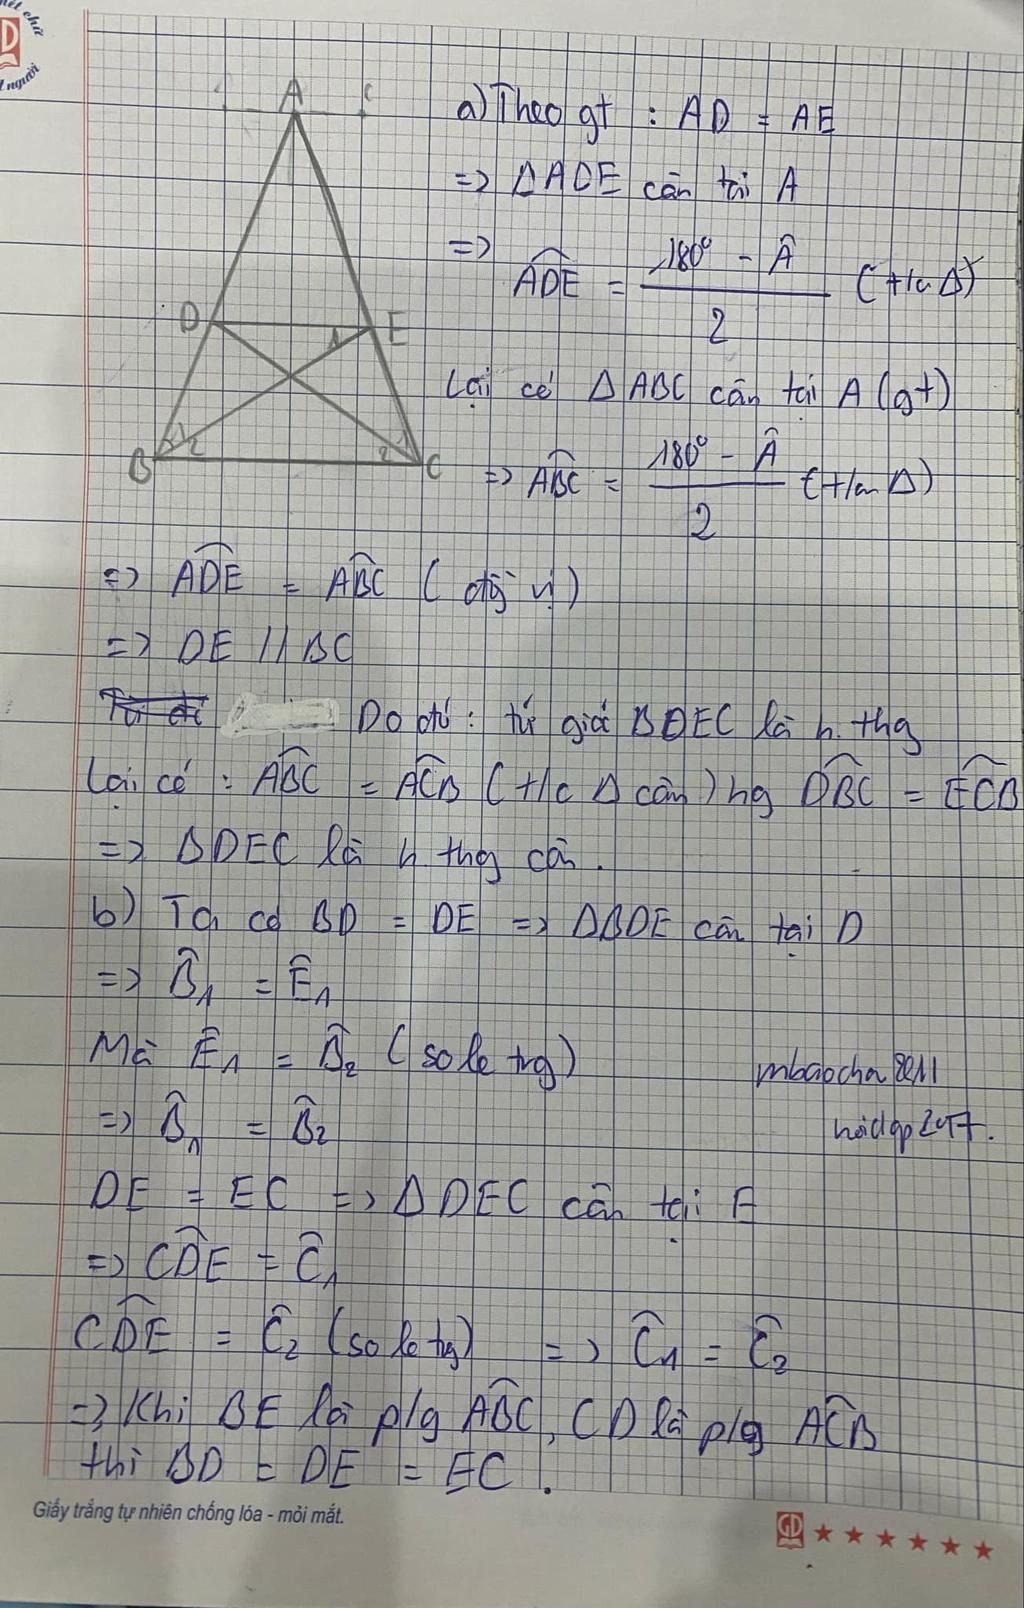 nét chữ
D
người
A
a) Theo gt : AD = AE
=> ΔADE cân tại A
=> ADE = 180° - Â / 2 (t/c Δ)
D 1 E
Lại có ΔABC cân tại A (gt)
B 1 2 2 1 C
=> ABC = 180° - Â / 2 (t/c Δ)
=> ADE = ABC (đồg vị)
=> DE // BC
Do đó : tứ giác BDEC là h. thg
Lại có : ABC = ACB (t/c Δ cân) hg DBC = ECB
=> BDEC là h thg cân.
b) Ta có BD = DE => ΔBDE cân tại D
=> B̂1 = Ê1
Mà Ê1 = B̂2 (so le trg)
mbaocha2011
=> B̂1 = B̂2
hoidap247.
DE = EC => ΔDEC cân tại E
=> CDE = Ĉ1
CDE = Ĉ2 (so le trg) => Ĉ1 = Ĉ2
=> Khi BE là p/g ABC, CD là p/g ACB
thì BD = DE = EC.
Giấy trắng tự nhiên chống lóa - mỏi mắt.
GD